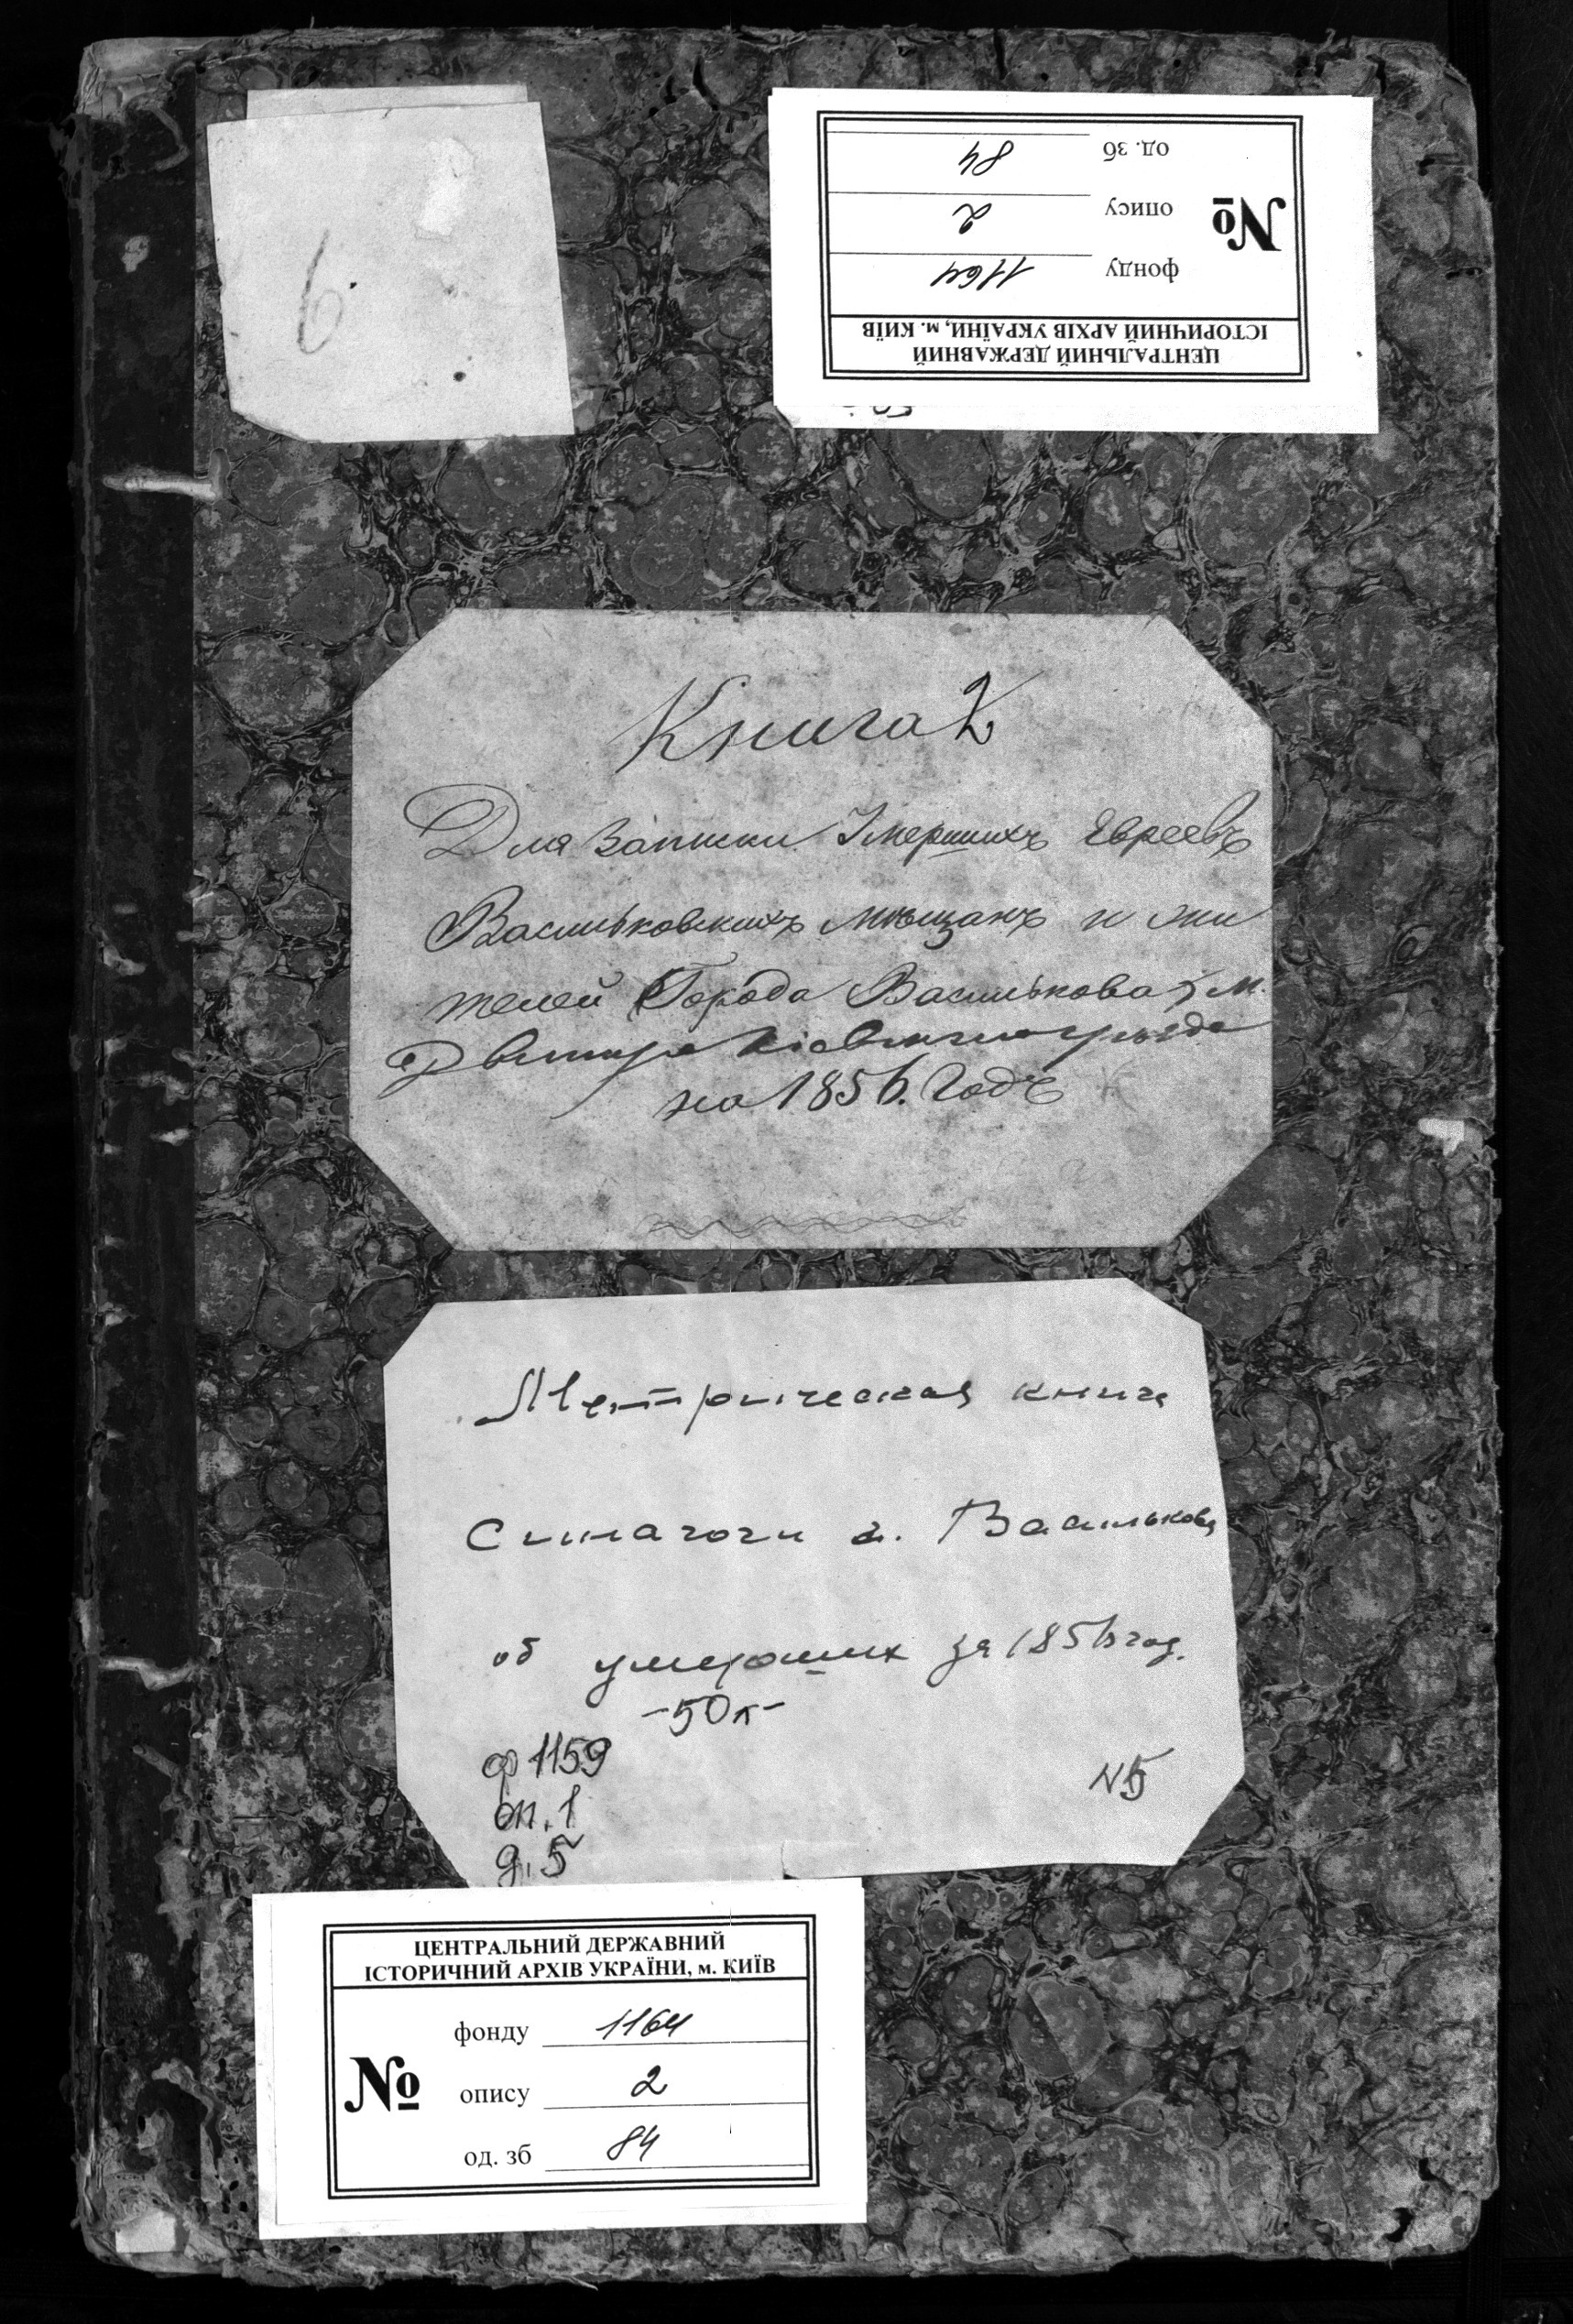 6.
ЦЕНТРАЛЬНИЙ ДЕРЖАВНИЙ
ІСТОРИЧНИЙ АРХІВ УКРАЇНИ, м. КИЇВ
№
фонду 1164
опису 2
од. зб 84
Книга 2
Для записки Умершихъ Евреевъ
Васильковскихъ мѣщанъ и жи
телей Города Василькова, м.
на 1856. Годъ
Метрическая книга
Синагоги г. Василькова
об умерших за 1856 год.
-50к-
ф 1159
оп. 1
д. 5
N5
ЦЕНТРАЛЬНИЙ ДЕРЖАВНИЙ
ІСТОРИЧНИЙ АРХІВ УКРАЇНИ, м. КИЇВ
№
фонду 1164
опису 2
од. зб 84